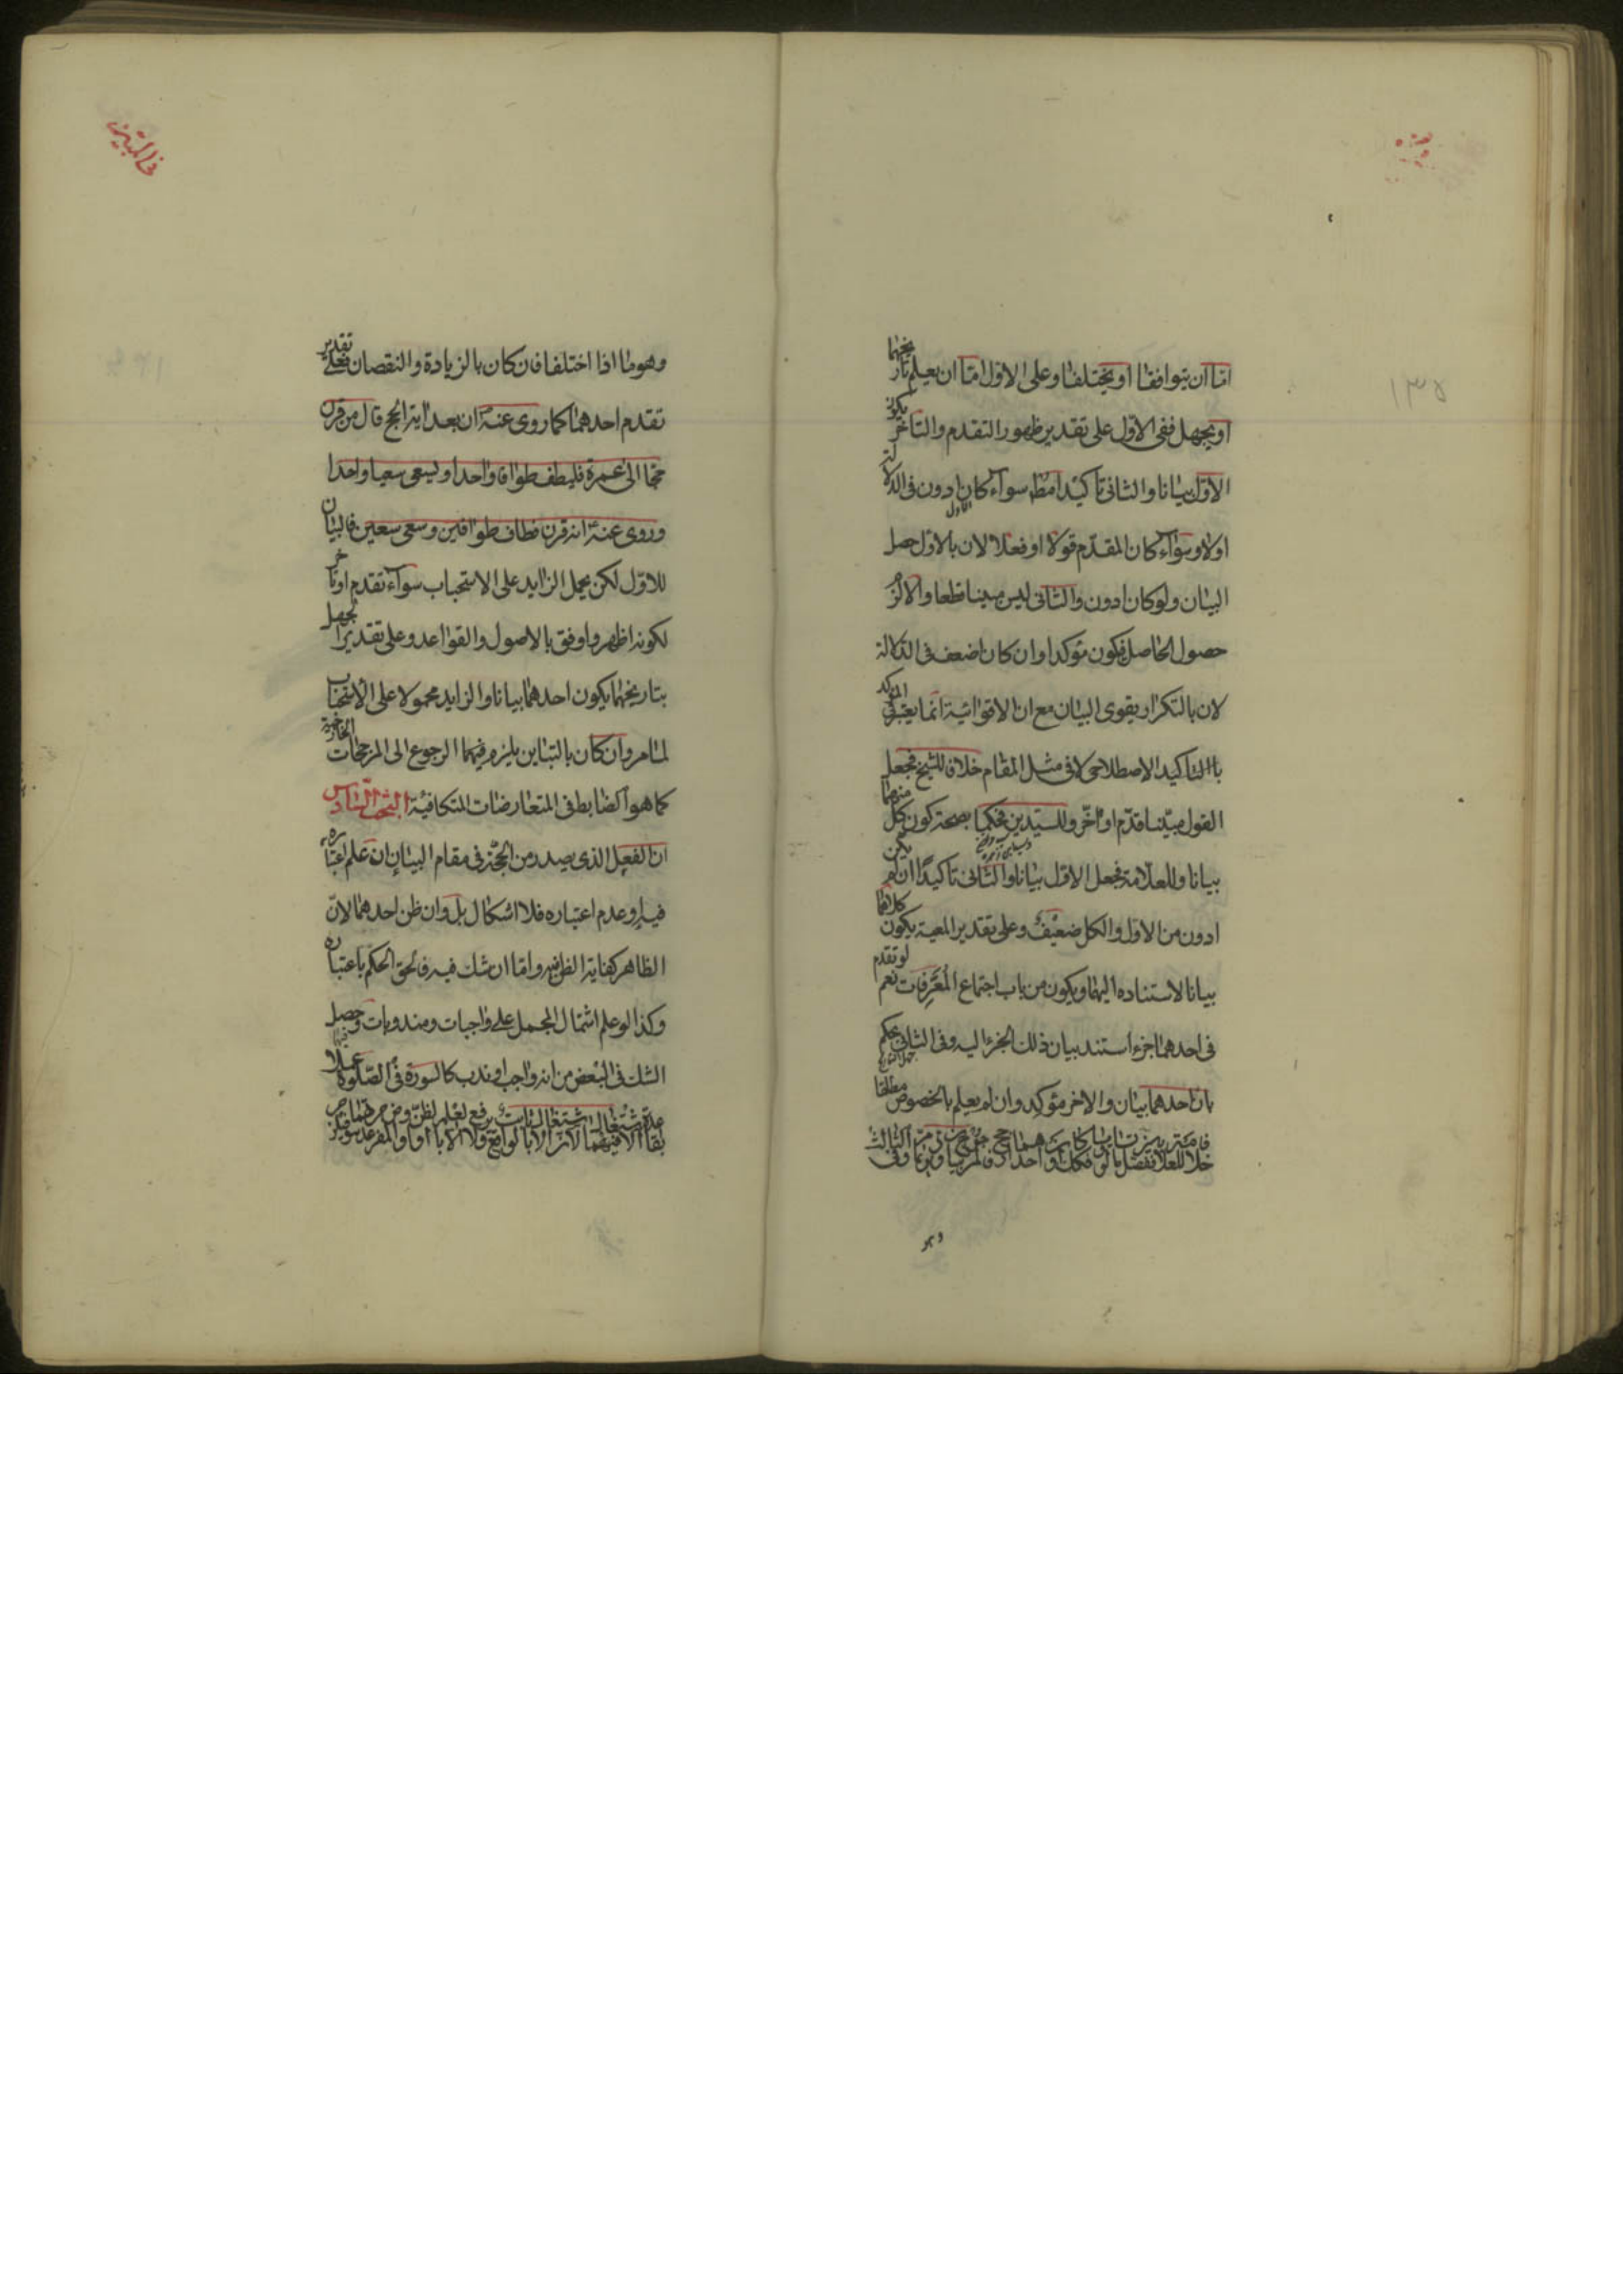 اما ان يتوافقا او يختلفا وعلى الاول اما ان يعلم تاريخهما
او يجهل ففى الاول على تقدير ظهور التقدم والتاخر يكون
الاول بيانا والثانى تاكيدا مط سواء كان ادون فى الدلالة
اولا وسواء كان المقدم قولا او فعلا لان بالاول حصل
البيان ولو كان ادون والثانى ليس مبينا قطعا والا لزم
حصول الحاصل فيكون مؤكدا وان كان اضعف فى الدلالة
لان بالتكرار يقوى البيان مع ان الاقوائية انما يعتبر فى المؤكد
بالتاكيد الاصطلاحى لا فى مثل المقام خلافا للشيخ فجعل
القول مبينا قدم او اخر وللسيدين فحكما بصحة كون كل منهما
بيانا وللعلامة فجعل الاول بيانا والثانى تاكيدا ان لم يكن
ادون من الاول والكل ضعيف وعلى تقدير المعية يكون كلاهما
بيانا لاستناده اليهما ويكون من باب اجتماع المعرفات نعم لو تقدم
فى احدهما جزء استند بيان ذلك الجزء اليه وفى الثانى يحكم
بان احدهما بيان والاخر مؤكد وان لم يعلم بالخصوص مطلقا
وهو
فى المبين
وهو ما اذا اختلفا فان كان بالزيادة والنقصان فعلى تقدير
تقدم احدهما كما روى عنه ان بعد اية الحج قال من قرن
حجا الى عمرة فليطف طوافا واحدا وليسعى سعيا واحدا
وروى عنه انه قرن فطاف طوافين وسعى سعيين فالبيان
للاول لكن يحمل الزايد على الاستحباب سواء تقدم او تاخر
لكونه اظهر واوفق بالاصول والقواعد وعلى تقدير الجهل
بتاريخهما يكون احدهما بيانا والزايد محمولا على الاستحباب
لما مر وان كان بالتباين يلزم فيهما الرجوع الى المرجحات الخارجية
كما هو الضابط فى المتعارضات المتكافئة البحث السادس
ان الفعل الذى يصدر من الحجة فى مقام البيان ان علم اعتباره
فيه او عدم اعتباره فلا اشكال بل وان ظن احدهما لان
الظاهر كفاية الظن فيه واما ان شك فيه فالحق الحكم باعتباره
وكذا لو علم اشتمال المجمل على واجبات ومندوبات وحصل
الشك فى البعض من انه واجب او ندب كالسورة فى الصلوة عملا